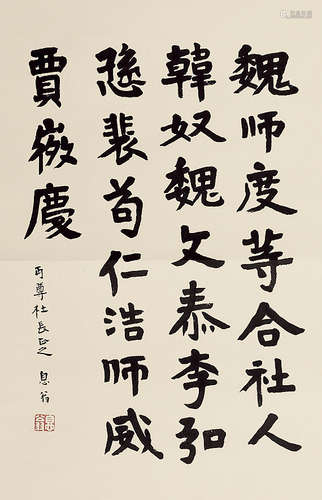 魏师度等合社人
韓奴魏文泰李弘
裴苟仁浩师威
賈嶶慶
丏尊社長正之 息翁